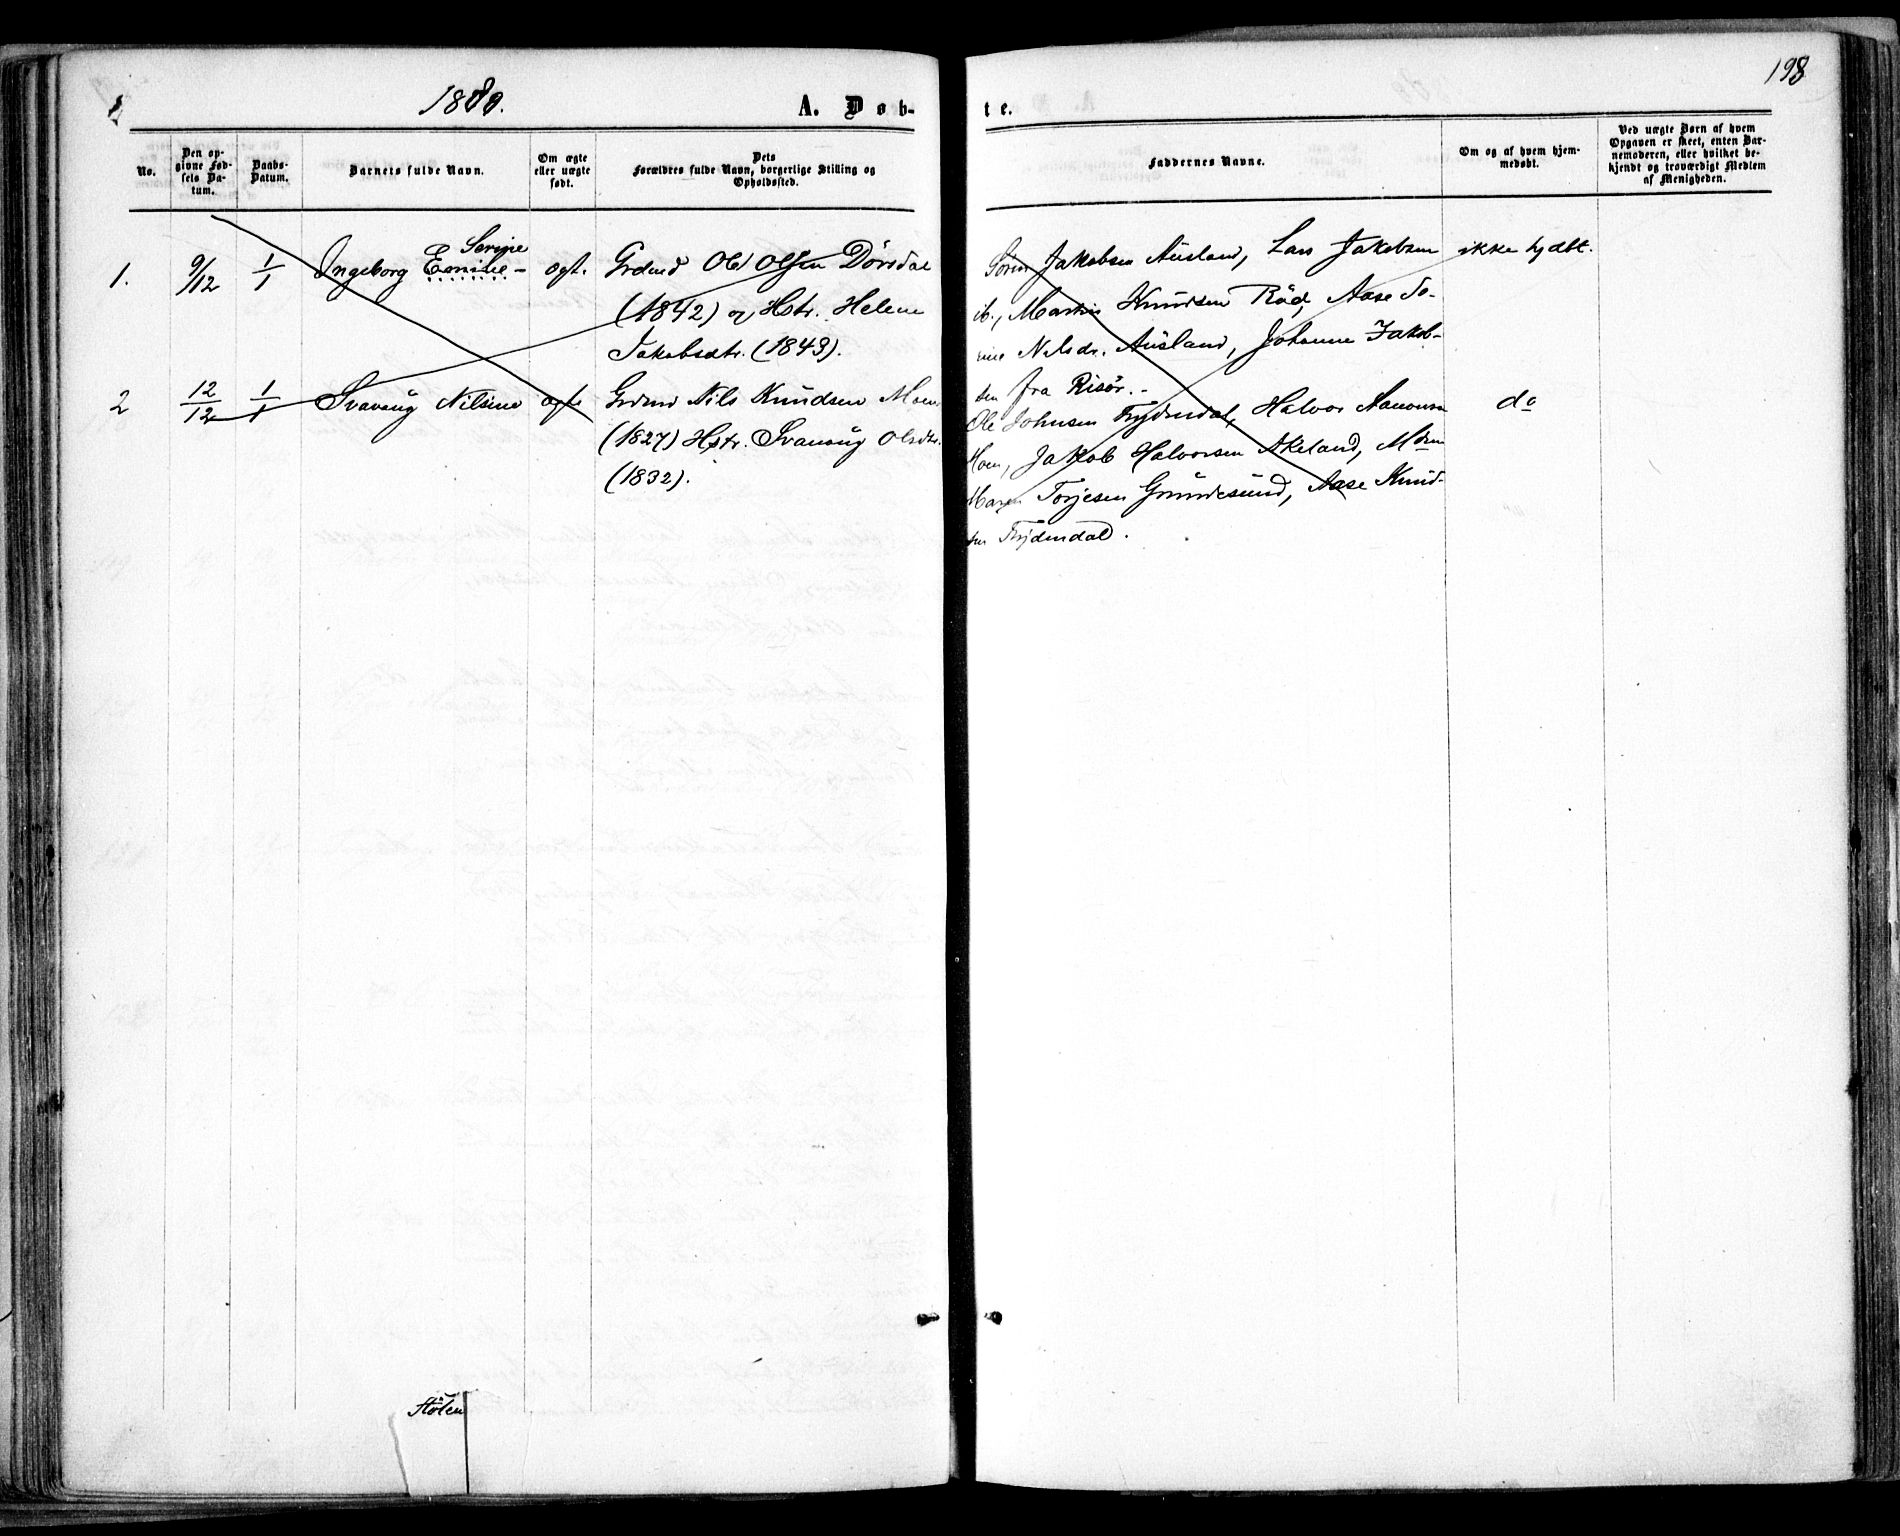 1880.
A. Døb-
te.
198
No.
Den op-
givne Fød-
sels Da-
tum.
Daabs-
Datum.
Barnets fulde Navn.
Om ægte
eller uægte
født.
Dets
Forældres fulde Navn, borgerlige Stilling og
Opholdssted.
Faddernes Navne.
Om og af hvem hjem-
medøbt.
Ved uægte Børn af hvem
Opgaven er skeet, enten Bar-
nemoderen, eller hvilket be-
kjendt og troværdigt Medlem
af Menigheden.
1.
9/12
1/1
Serine
Ingeborg Emilie -
ægt.
Grdmd Ole Olsen Dørsdal
(1842) og Hstr. Helene
Jakobsdtr. (1843).
Søren Jakobsen Ausland, Lars Jakobsen
ib., Martin Knudsen Röd, Aase So-
rine Nilsdr. Ausland, Johanne Jakob-
sen fra Risör.-
ikke hjdbt.
2
12/12
1/1
Svanaug Nilsine
ægte
Grdmd Nils Knudsen Moen
(1827) Hstr. Svanaug Olsdtr.
(1832).
Ole Johnsen Frydendal, Halvor Aanonsen
Moen, Jakob Halvorsen Akeland,
Maren Torjesen Grundesund, Aase Knud-
sen Frydendal.
do
Stölen